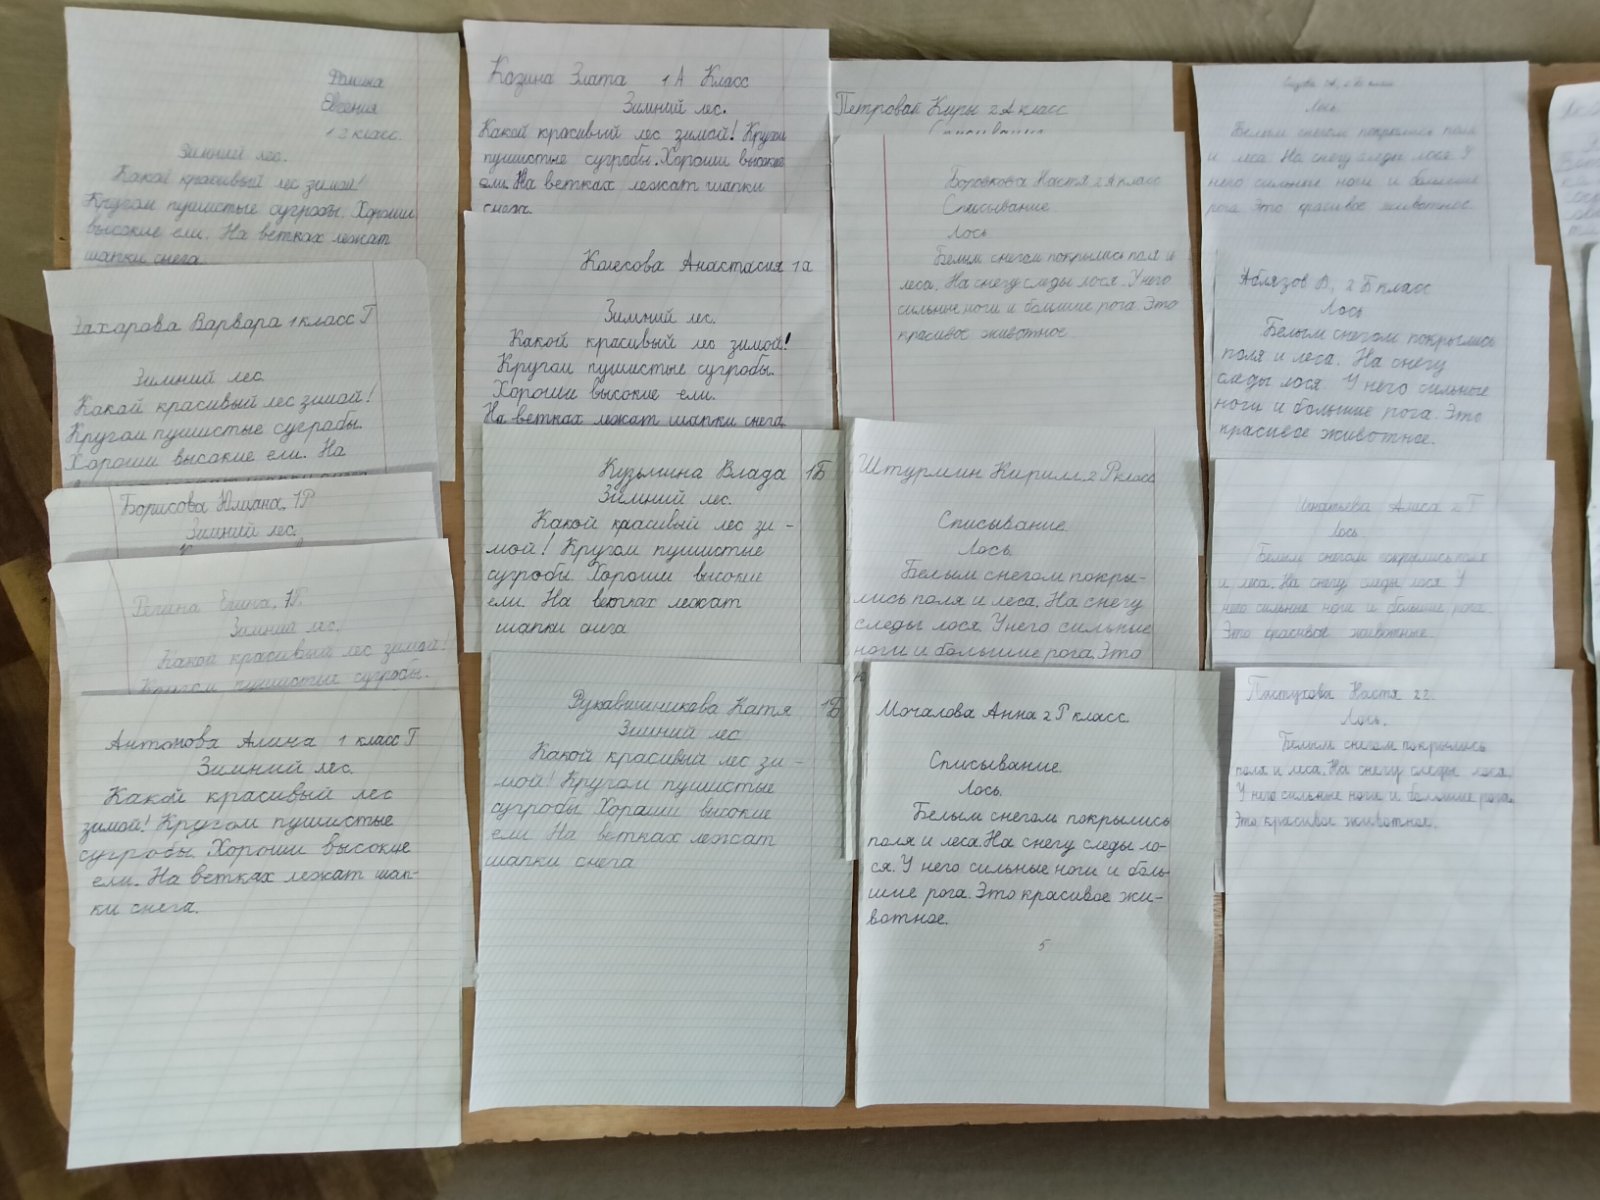 Фомина
Евгения
1 г класс.
Зимний лес.
Какой красивый лес зимой!
Кругом пушистые сугробы. Хороши
высокие ели. На ветках лежат
шапки снега.
Захарова Варвара 1 класс Г
Зимний лес.
Какой красивый лес зимой!
Кругом пушистые сугробы.
Хороши высокие ели. На
Борисова Юлиана, 1Г
Зимний лес.
Репина Елена, 1Г.
Зимний лес.
Какой красивый лес зимой!
Кругом пушистые сугробы.
Антонова Алина 1 класс Г
Зимний лес.
Какой красивый лес
зимой! Кругом пушистые
сугробы. Хороши высокие
ели. На ветках лежат шап-
ки снега.
Казина Злата 1 А Класс
Зимний лес.
Какой красивый лес зимой! Кругом
пушистые сугробы. Хороши высокие
ели. На ветках лежат шапки
снега.
Колесова Анастасия 1а
Зимний лес.
Какой красивый лес зимой!
Кругом пушистые сугробы.
Хороши высокие ели.
На ветках лежат шапки снега.
Кузьмина Влада 1Б
Зимний лес.
Какой красивый лес зи-
мой! Кругом пушистые
сугробы. Хороши высокие
ели. На ветках лежат
шапки снега
Рукавишникова Катя 1Б
Зимний лес
Какой красивый лес зи-
мой! Кругом пушистые
сугробы. Хороши высокие
ели. На ветках лежат
шапки снега
Петровой Киры 2 А класс
Списывание
Боровкова Настя 2 А класс
Списывание.
Лось
Белым снегом покрылись поля и
леса. На снегу следы лося. У него
сильные ноги и большие рога. Это
красивое животное.
Штурмин Кирилл 2 Г класс
Списывание.
Лось.
Белым снегом покры-
лись поля и леса. На снегу
следы лося. У него сильные
ноги и большие рога. Это
Мочалова Анна 2 Г класс.
Списывание.
Лось.
Белым снегом покрылись
поля и леса. На снегу следы ло-
ся. У него сильные ноги и боль-
шие рога. Это красивое жи-
вотное.
5
2 Б класс
Лось.
Белым снегом покрылись поля
и леса. На снегу следы лося. У
него сильные ноги и большие
рога. Это красивое животное.
Аблязов В, 2 Б класс
Лось
Белым снегом покрылись
поля и леса. На снегу
следы лося. У него сильные
ноги и большие рога. Это
красивое животное.
Алиса 2 Г
Лось
Белым снегом покрылись поля
и леса. На снегу следы лося. У
него сильные ноги и большие рога.
Это красивое животное.
Пастухова Настя 2г.
Лось.
Белым снегом покрылись
поля и леса. На снегу следы лося.
У него сильные ноги и большие рога.
Это красивое животное.